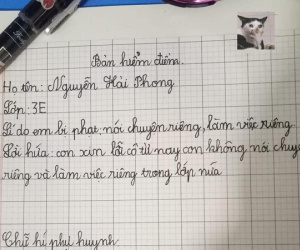 Bản kiểm điểm.
Họ tên: Nguyễn Hải Phong
Lớp: 3E
Lí do em bị phạt: nói chuyện riêng, làm việc riêng
Lời hứa: con xin lỗi cô từ nay con không nói chuyện
riêng và làm việc riêng trong lớp nữa
Chữ kí phụ huynh